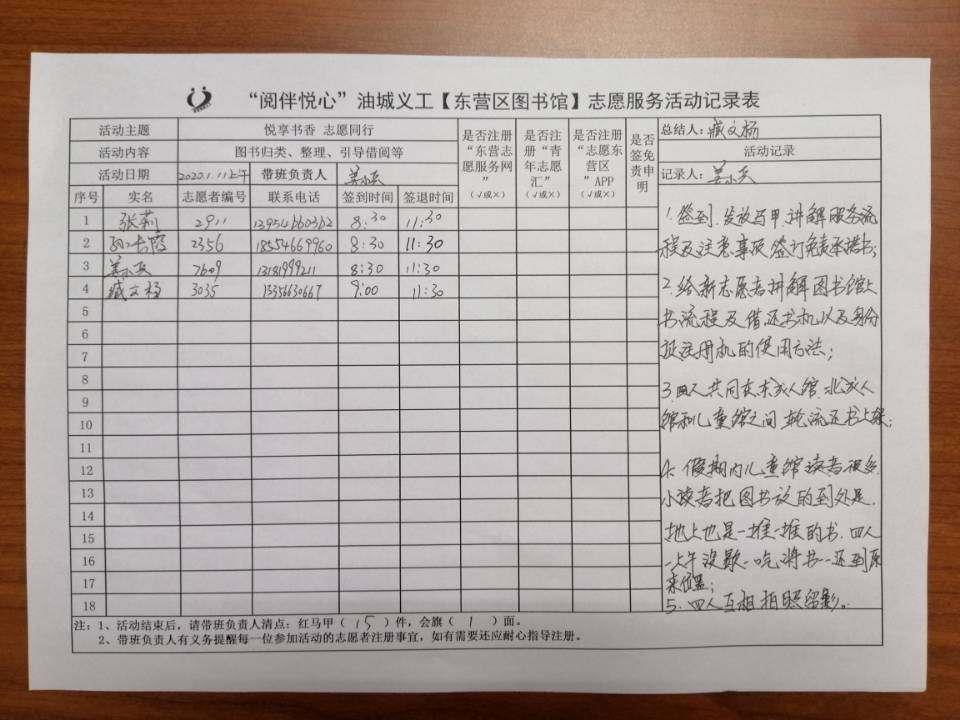 “阅伴悦心”油城义工【东营区图书馆】志愿服务活动记录表
活动主题 悦享书香 志愿同行
活动内容 图书归类、整理、引导借阅等
活动日期 2020.1.11上午 带班负责人
是否注册“东营志愿服务网”(√或×)
是否注册“青年志愿汇”(√或×)
是否注册“志愿东营区”APP(√或×)
是否签免责申明
总结人：臧文杨
活动记录
记录人：
序号 实名 志愿者编号 联系电话 签到时间 签退时间
1 张莉 2911 13954660362 8:30 11:30
2 2356 18554669960 8:30 11:30
3 7609 13181999211 8:30 11:30
4 臧文杨 3035 13356630667 9:00 11:30
5
6
7
8
9
10
11
12
13
14
15
16
17
18
1.签到、发放马甲、讲解服务流
程及注意事项、签订免责承诺书；
2.给新志愿者讲解图书馆上
书流程及借还书机以及身份
证注册机的使用方法；
3.四人共同在东成人馆、北成人
馆和儿童馆之间，轮流还书上架；
4.假期内儿童馆读者很多，
小读者把图书放的到处是，
地上也是一堆一堆的书，四人
一上午没歇一吃将书一还到原
来位置；
5.四人互相拍照留影。
注：1、活动结束后，请带班负责人清点：红马甲（15）件，会旗（1）面。
2、带班负责人有义务提醒每一位参加活动的志愿者注册事宜，如有需要还应耐心指导注册。